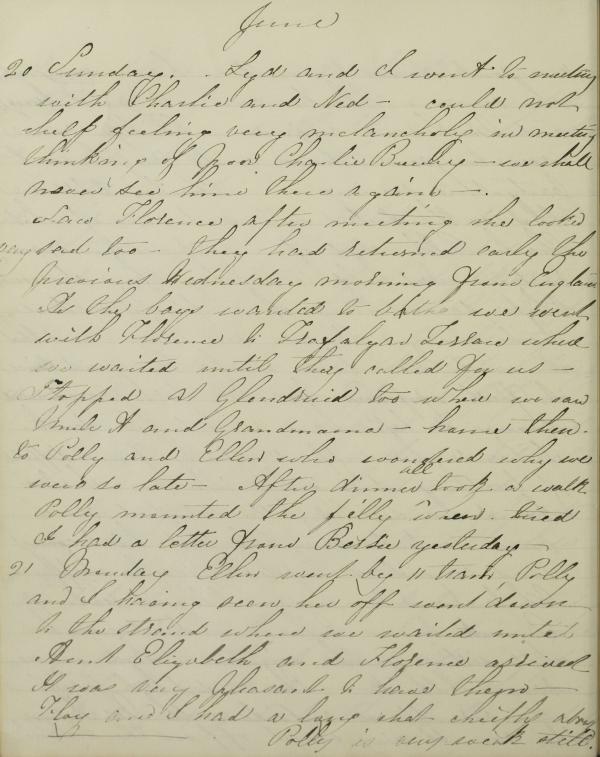 June
20 Sunday. Lyd and I went to meeting
with Charlie and Ned - could not
help feeling very melancholy in meeting
thinking of poor Charlie - we shall
never see him there again -.
Saw Florence after meeting she looked
very sad too - they had returned early the
previous Wednesday morning from England
As the boys wanted to bathe we went
with Florence to Trafalgar Terrace where
we waited until they called for us -
Stopped at Glendruid too where we saw
Uncle A and Grandmama - home then.
to Polly and Ellen who wondered why we
were so late - After dinner all took a walk
Polly mounted the filly when tired
I had a letter from Bessie yesterday
21 Monday Ellen went by 11 train, Polly
and I having seen her off went down
to the strand where we waited until
Aunt Elizabeth and Florence arrived
It was very pleasant to have them -
Floy and I had a long chat chiefly abou
Polly is very weak still.